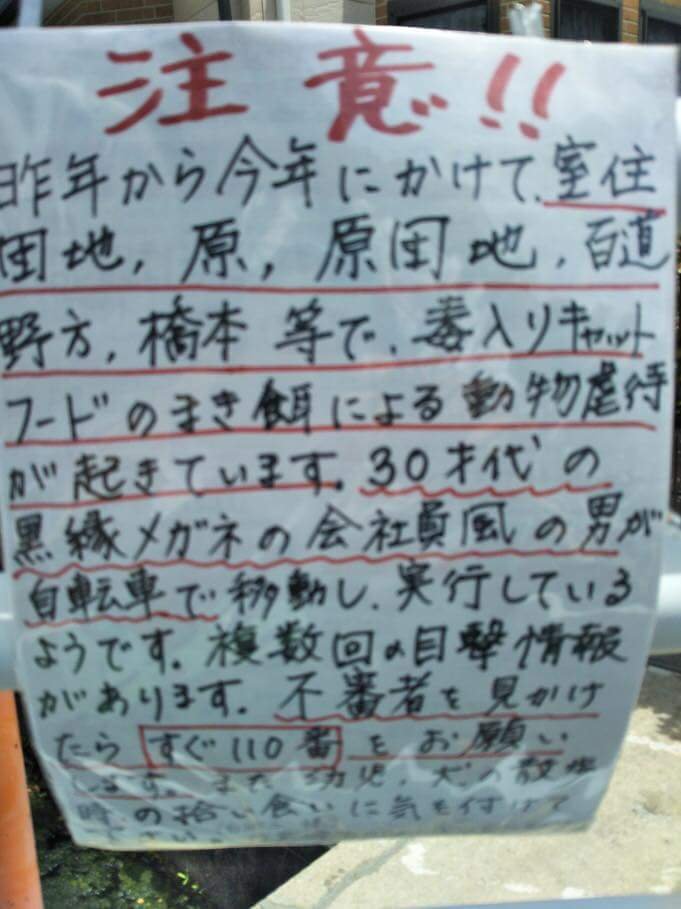 注意!!
昨年から今年にかけて、室住
団地,原,原団地,百道
野方,橋本等で、毒入りキャット
フードのまき餌による動物虐待
が起きています。30才代の
黒縁メガネの会社員風の男が
自転車で移動し、実行している
ようです。複数回の目撃情報
があります。不審者を見かけ
たらすぐ110番をお願い
します。また幼児,犬の散歩
時の拾い食いに気を付けて
下さい。